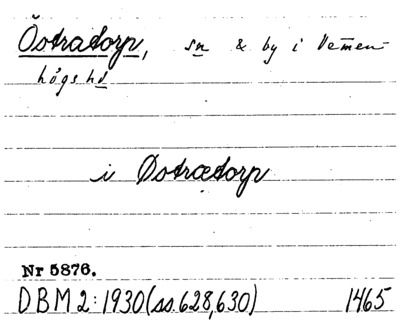 Östratorp, sn & by i Vemen-
högs hd
i Østrætorp
Nr 5876.
DBM 2:1930(ss.628,630) 1465